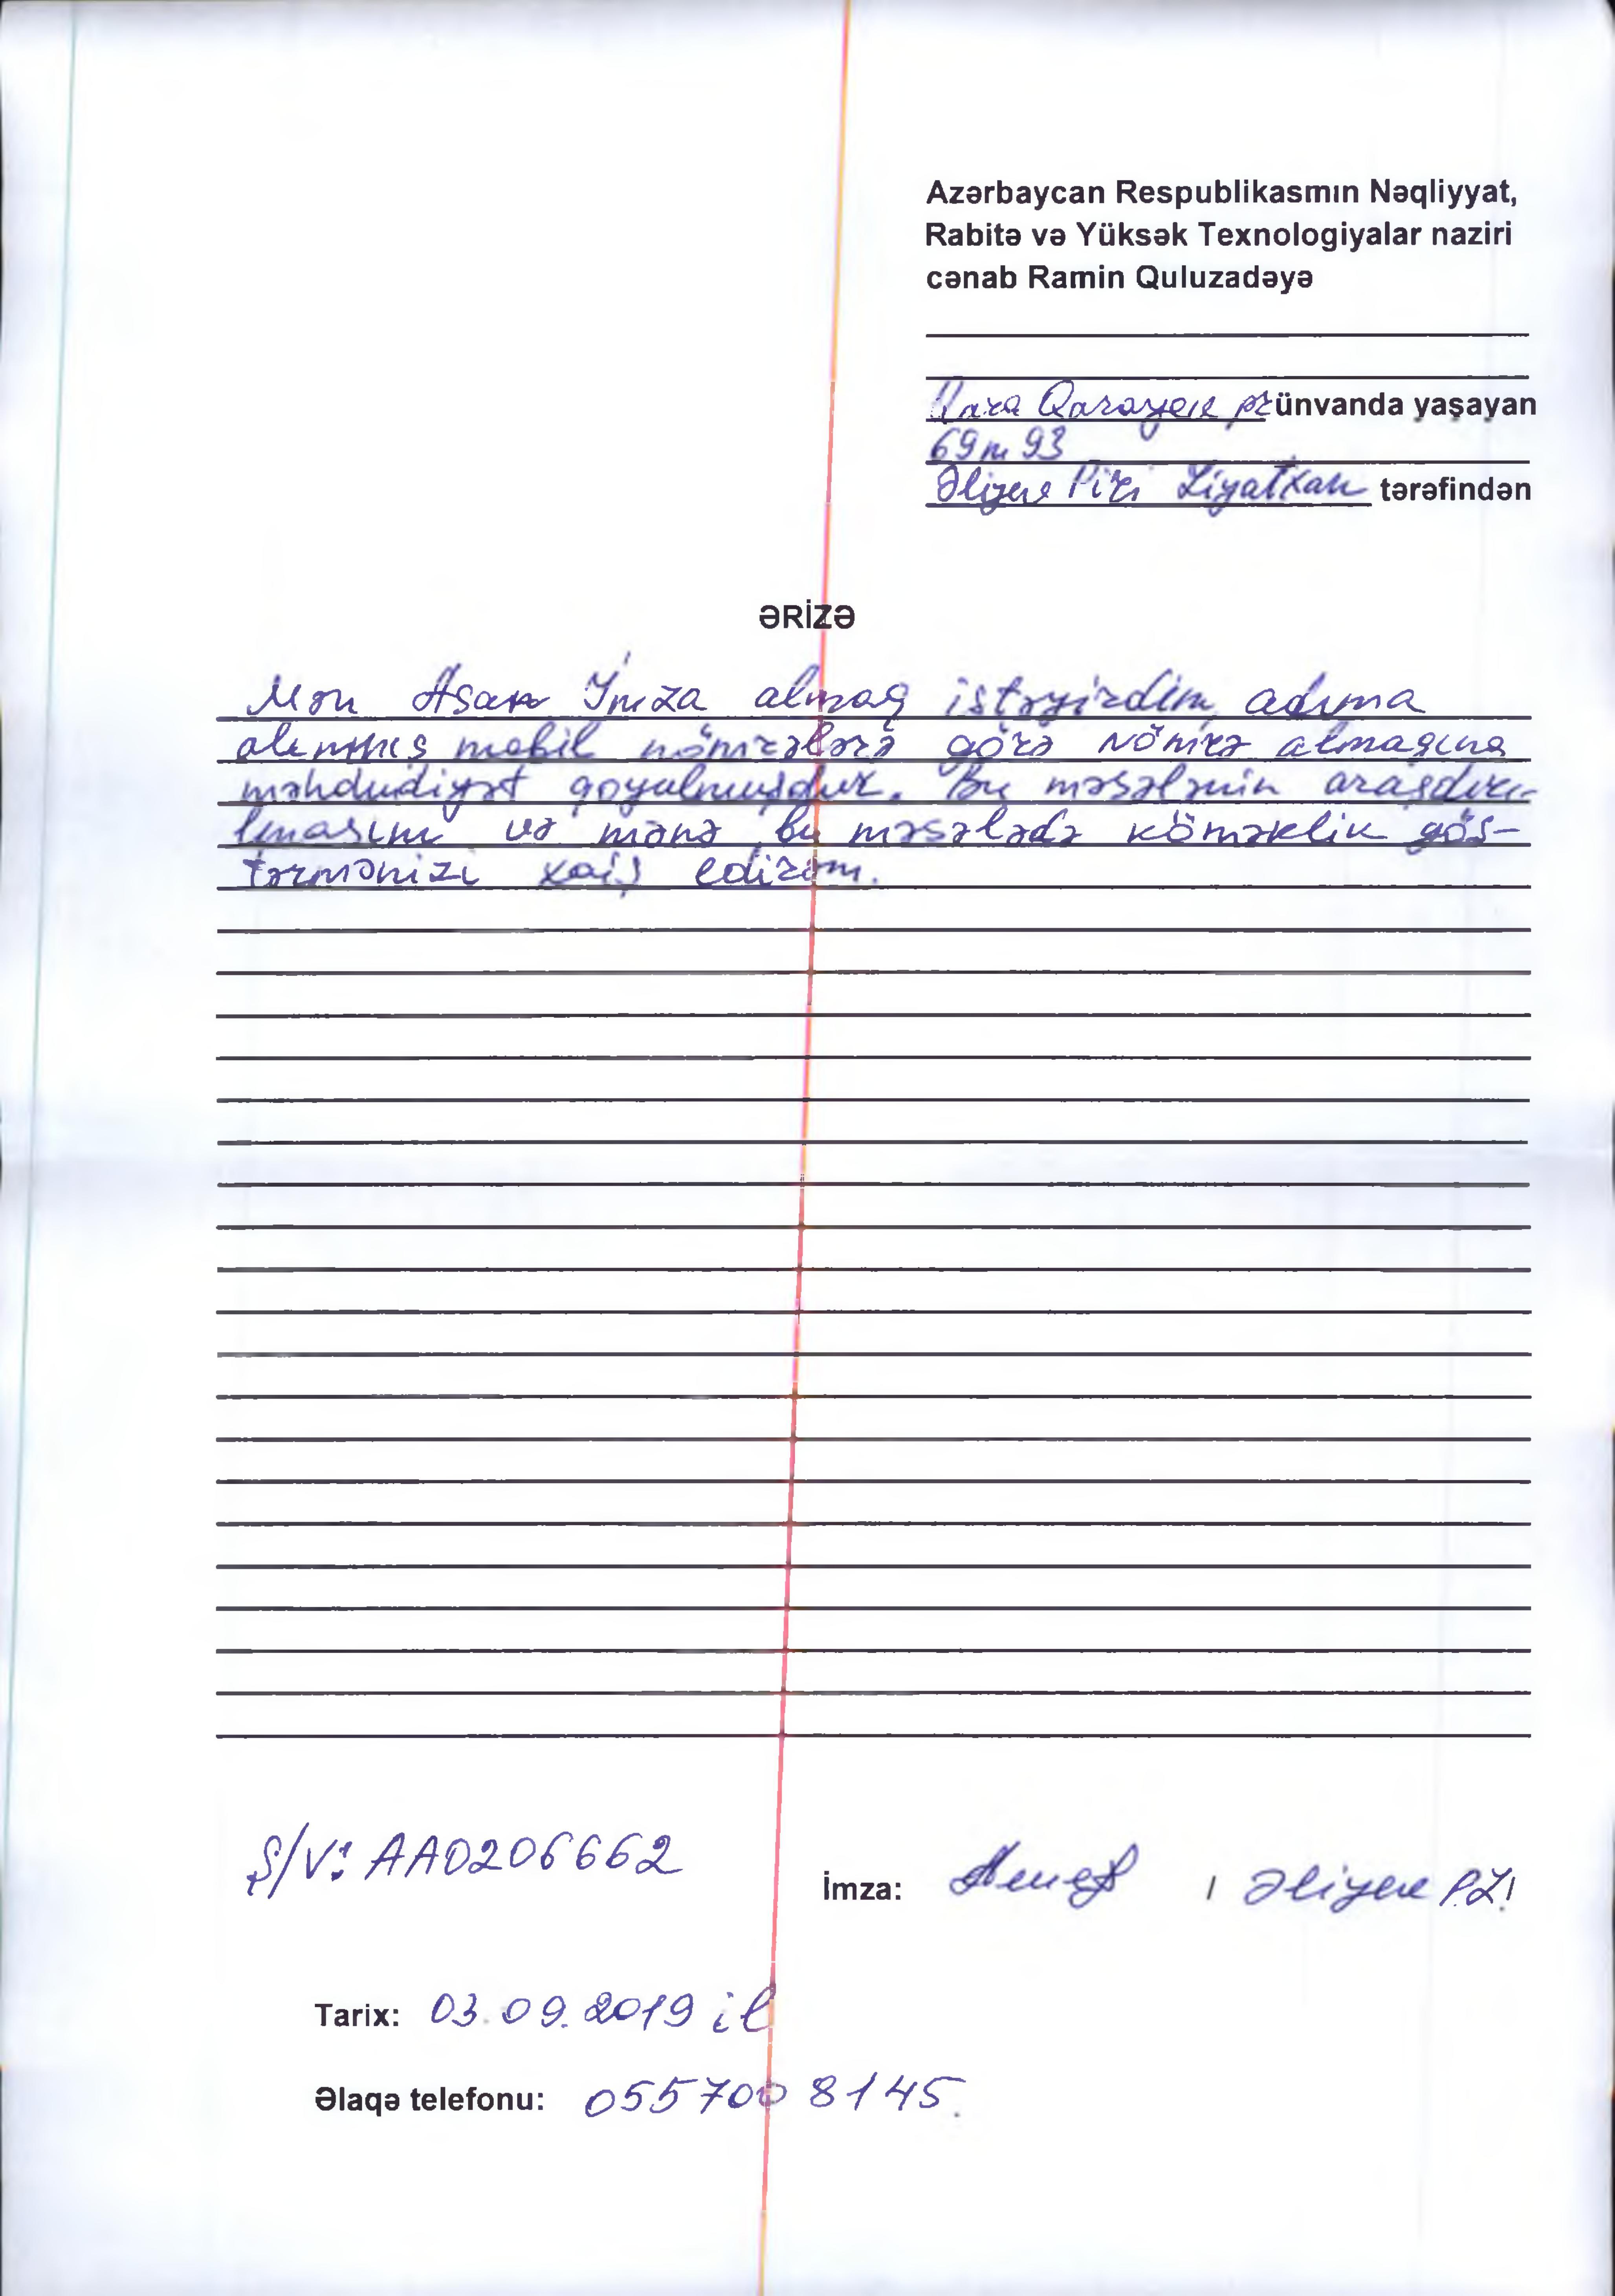 Azərbaycan Respublikasmın Nəqliyyat,
Rabitə və Yüksək Texnologiyalar naziri
cənab Ramin Quluzadəyə
Qara Qarayev pr ünvanda yaşayan
69 m 93
Əliyev Piri Ziyatxan tərəfindən
ƏRİZƏ
Mən Asan İmza almaq istəyirdim, adıma
alınmış mobil nömrələrə görə nömrə almağıma
məhdudiyət qoyulmuşdur. Bu məsələnin araşdırı-
lmasını və mənə bu məsələdə köməklik gös-
tərmənizi xaiş edirəm.
Ş/V: AA0206662
İmza: / Əliyev P.Z/
Tarix: 03.09.2019 il
Əlaqə telefonu: 055 700 81 45.